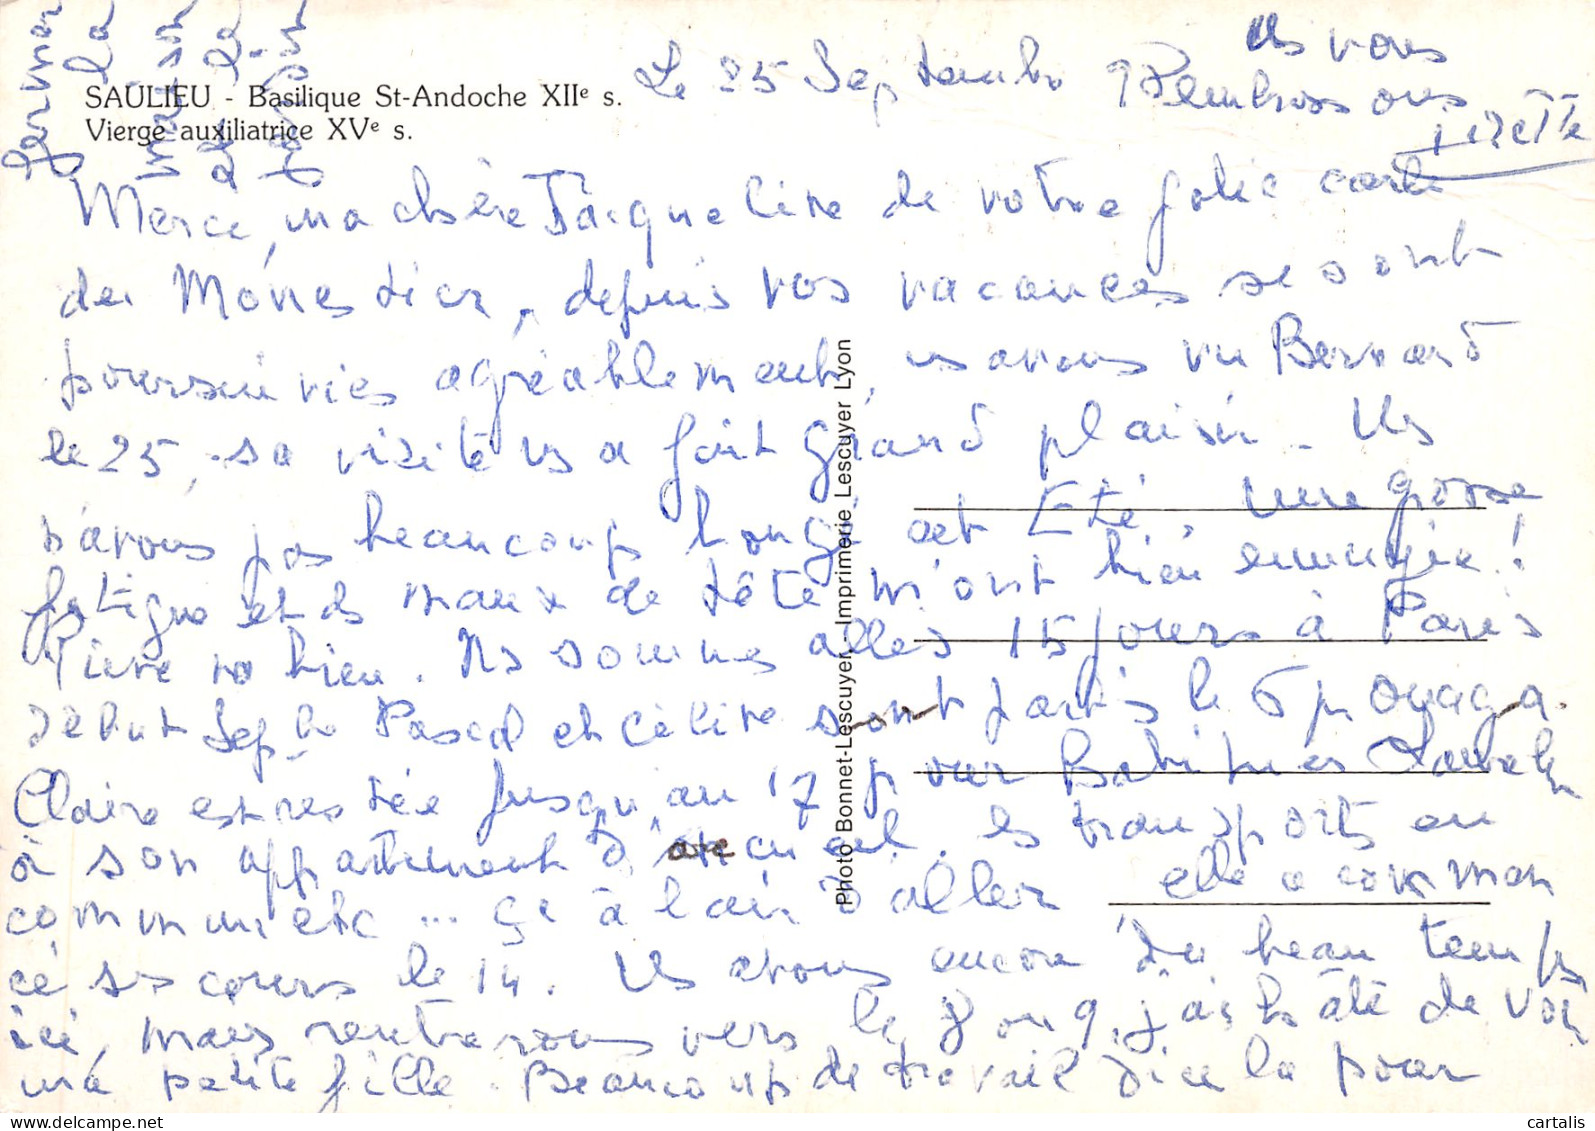 SAULIEU - Basilique St-Andoche XIIe s.
Vierge auxiliatrice XVe s.
Le 25 Septembre
ns vous
embrassons
Merci, ma chère Jacqueline de votre jolie carte
de Monestier, depuis vos vacances se sont
poursuivies agréablement, ns avons vu Bernard
le 25, sa visite ns a fait grand plaisir. Ns
n'avons pas beaucoup bougé cet Eté, une grosse
fatigue et ds maux de tête m'ont bien ennuyée !
Pierre va bien. Ns sommes allés 15 jours à Paris
début Sepbre Pascal et Céline sont partis le 6
Claire est restée jusqu'au 17 pour
à son appartement les transports en
commun etc... ça à l'air d'aller elle a commen
cé ses cours le 14. Ns avons encore du beau temps
ici, mais rentrerons vers le 8 ou 9, j'ai hâte de voir
ma petite fille. Beaucoup de travail d'ici là pour
Photo Bonnet-Lescuyer Imprimerie Lescuyer Lyon
cartalis